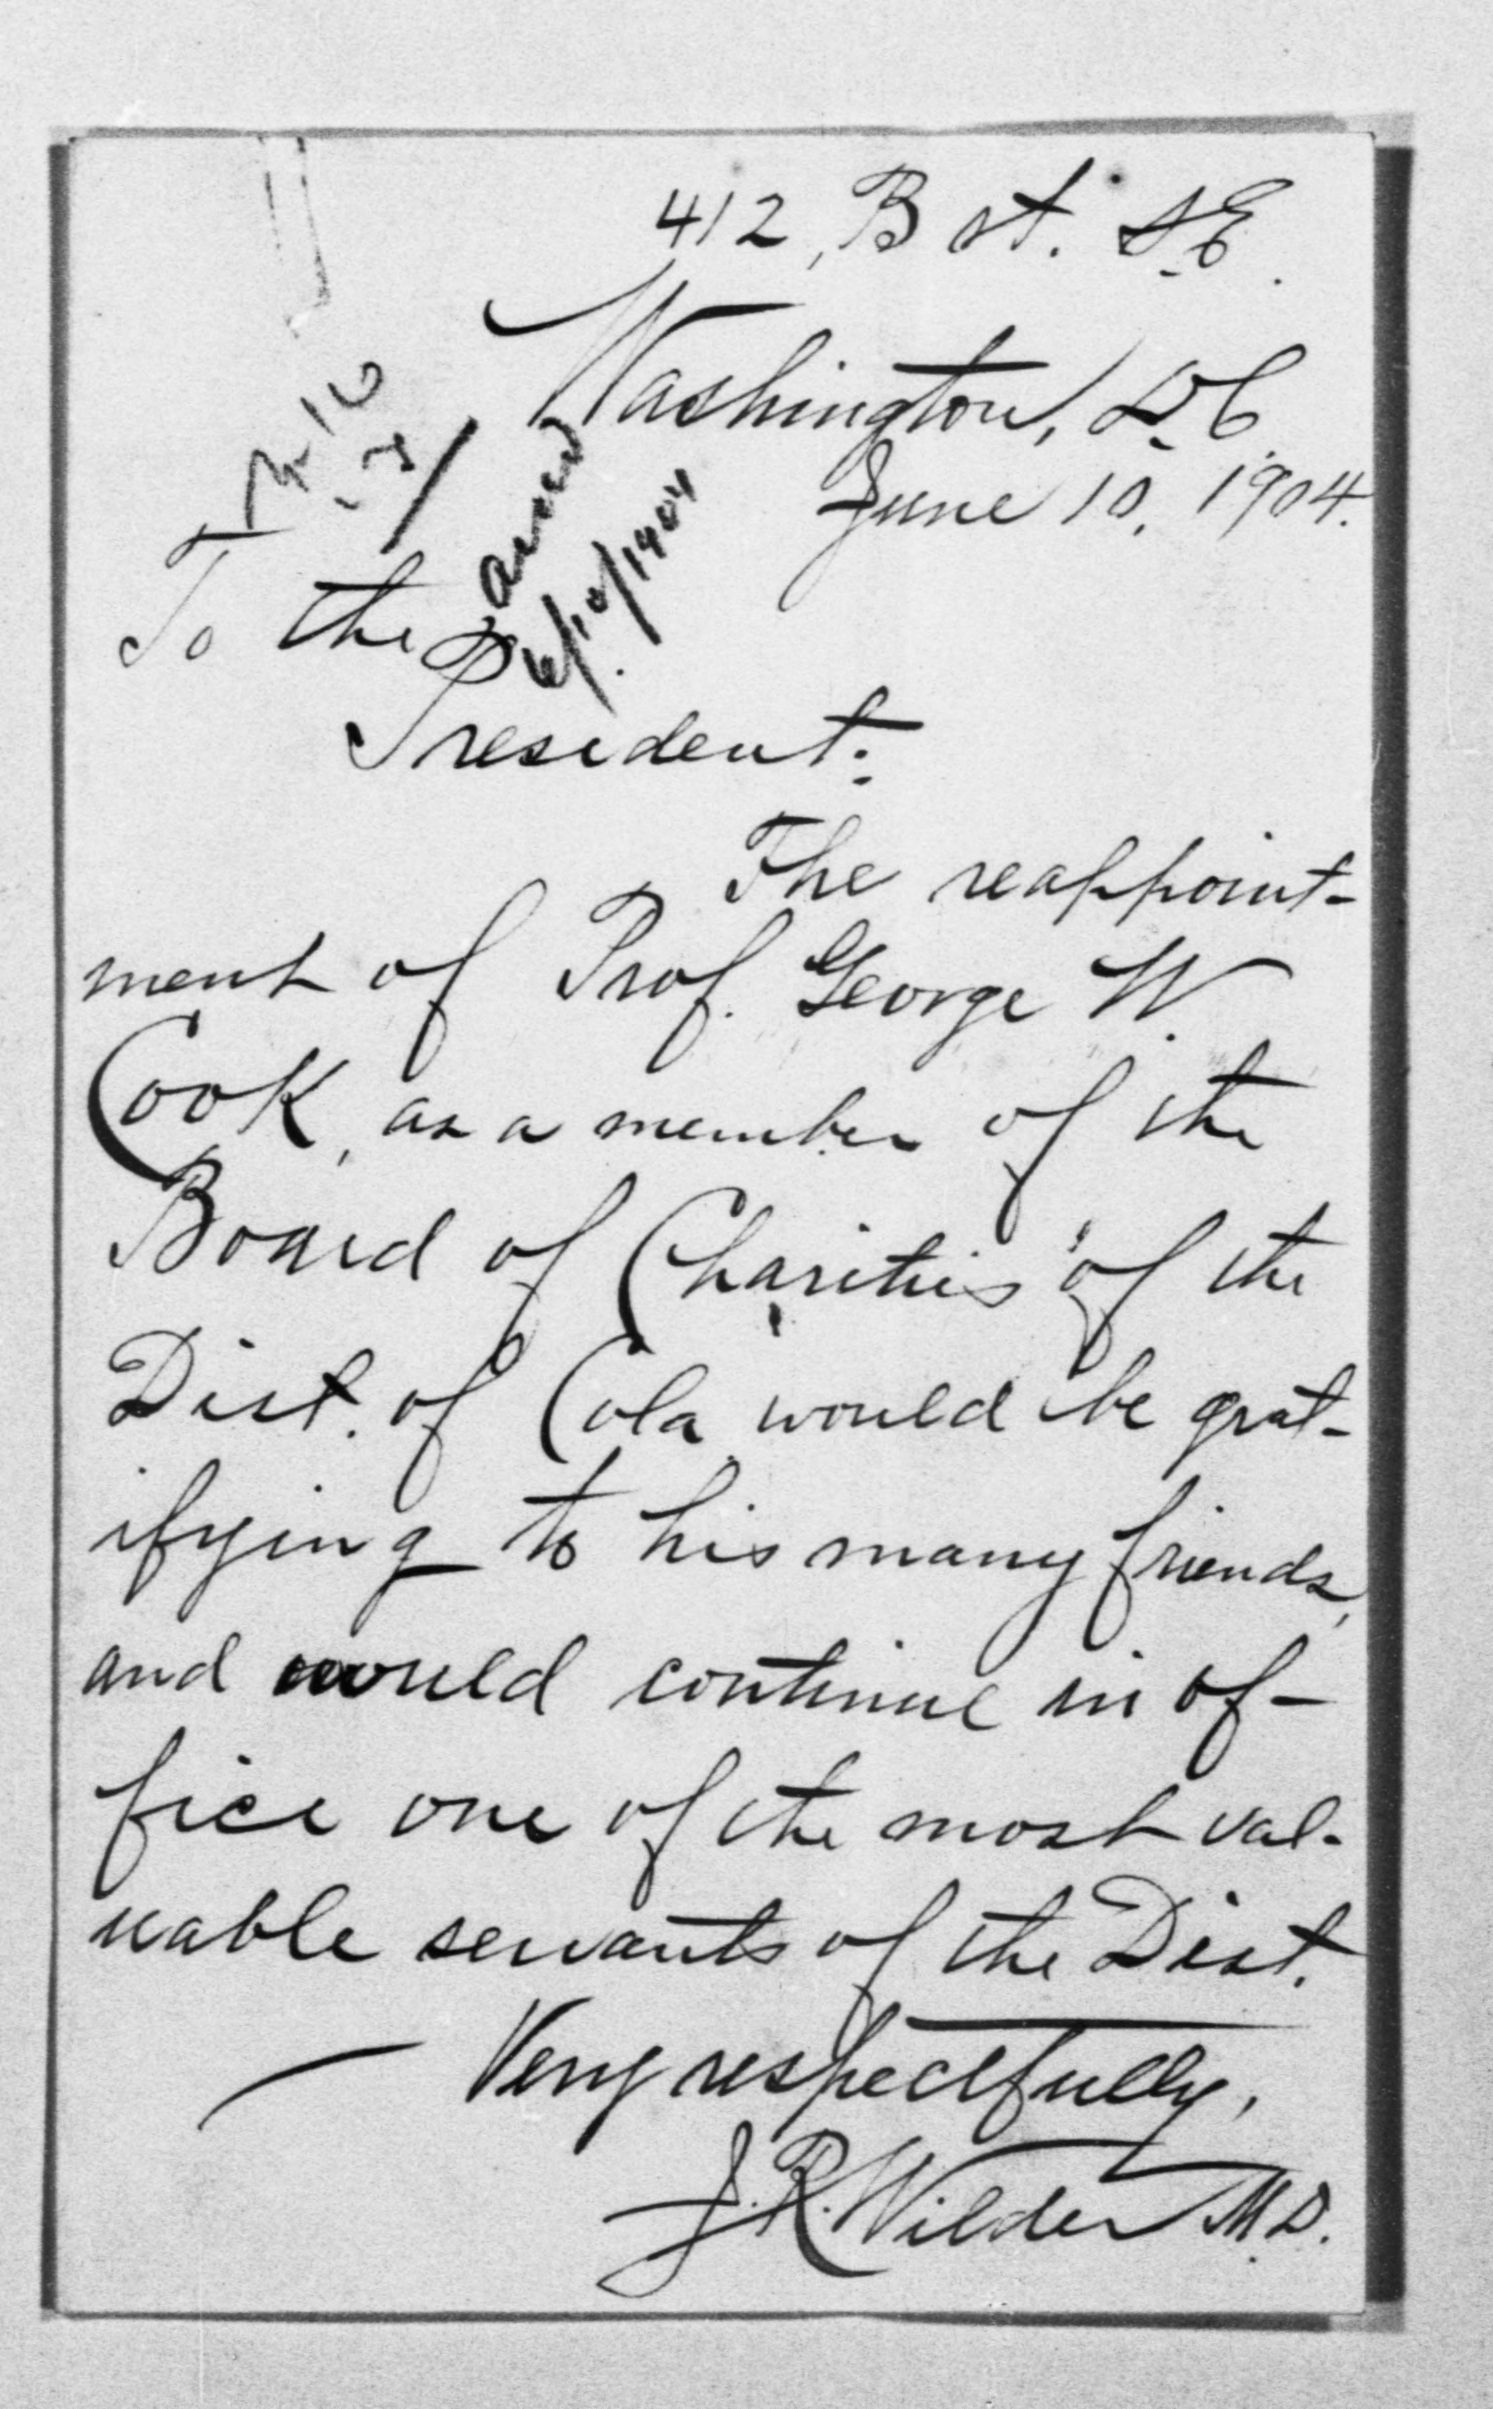 412, B st. S.E.
Washington, D.C
June 10, 1904.
ackd
6/10/1904
To the
President:
The reappoint-
ment of Prof. George W.
Cook, as a member of the
Board of Charities of the
Dist. of Cola. would be grat-
ifying to his many friends,
and would continue in of-
fice one of the most val-
uable servants of the Dist.
Very respectfully,
J. R. Wilder M.D.